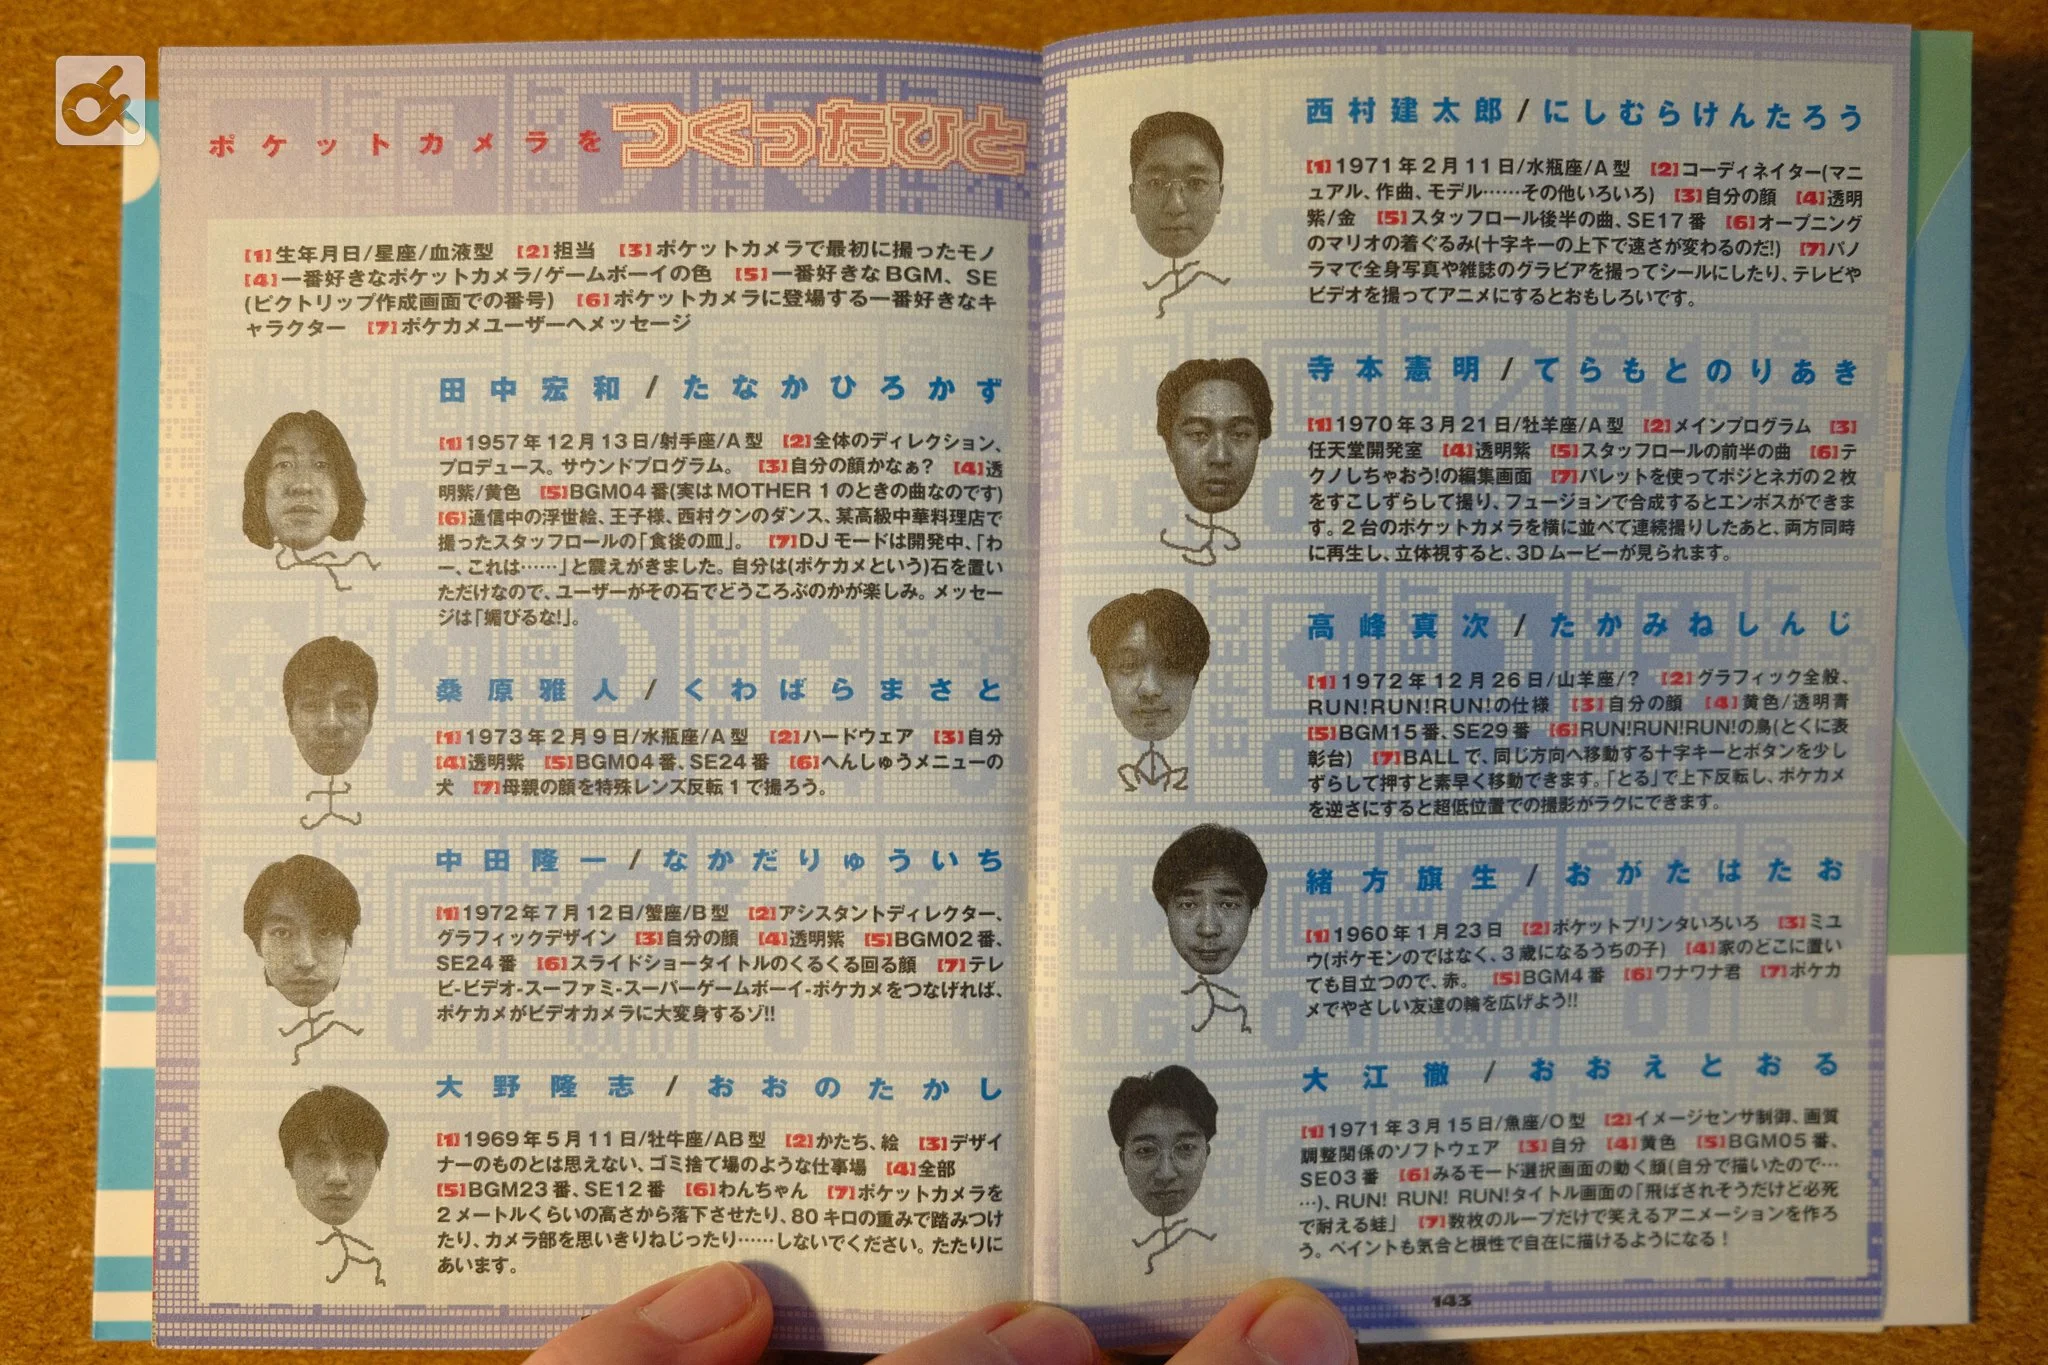 ポケットカメラを つくったひと
[1]生年月日/星座/血液型 [2]担当 [3]ポケットカメラで最初に撮ったモノ
[4]一番好きなポケットカメラ/ゲームボーイの色 [5]一番好きなBGM、SE
(ピクトリップ作成画面での番号) [6]ポケットカメラに登場する一番好きなキ
ャラクター [7]ポケカメユーザーへメッセージ
田中宏和/たなかひろかず
[1]1957年12月13日/射手座/A型 [2]全体のディレクション、
プロデュース。サウンドプログラム。 [3]自分の顔かなぁ? [4]透
明紫/黄色 [5]BGM04番(実はMOTHER 1のときの曲なのです)
[6]通信中の浮世絵、王子様、西村クンのダンス、某高級中華料理店で
撮ったスタッフロールの「食後の皿」。 [7]DJモードは開発中、「わ
ー、これは……」と震えがきました。自分は(ポケカメという)石を置い
ただけなので、ユーザーがその石でどうころぶのかが楽しみ。メッセー
ジは「媚びるな!」。
桑原雅人/くわばらまさと
[1]1973年2月9日/水瓶座/A型 [2]ハードウェア [3]自分
[4]透明紫 [5]BGM04番、SE24番 [6]へんしゅうメニューの
犬 [7]母親の顔を特殊レンズ反転1で撮ろう。
中田隆一/なかだりゅういち
[1]1972年7月12日/蟹座/B型 [2]アシスタントディレクター、
グラフィックデザイン [3]自分の顔 [4]透明紫 [5]BGM02番、
SE24番 [6]スライドショータイトルのくるくる回る顔 [7]テレ
ビ-ビデオ-スーファミ-スーパーゲームボーイ-ポケカメをつなげれば、
ポケカメがビデオカメラに大変身するゾ!!
大野隆志/おおのたかし
[1]1969年5月11日/牡牛座/AB型 [2]かたち、絵 [3]デザイ
ナーのものとは思えない、ゴミ捨て場のような仕事場 [4]全部
[5]BGM23番、SE12番 [6]わんちゃん [7]ポケットカメラを
2メートルくらいの高さから落下させたり、80キロの重みで踏みつけ
たり、カメラ部を思いきりねじったり……しないでください。たたりに
あいます。
西村建太郎/にしむらけんたろう
[1]1971年2月11日/水瓶座/A型 [2]コーディネイター(マニ
ュアル、作曲、モデル……その他いろいろ) [3]自分の顔 [4]透明
紫/金 [5]スタッフロール後半の曲、SE17番 [6]オープニング
のマリオの着ぐるみ(十字キーの上下で速さが変わるのだ!) [7]パノ
ラマで全身写真や雑誌のグラビアを撮ってシールにしたり、テレビや
ビデオを撮ってアニメにするとおもしろいです。
寺本憲明/てらもとのりあき
[1]1970年3月21日/牡羊座/A型 [2]メインプログラム [3]
任天堂開発室 [4]透明紫 [5]スタッフロールの前半の曲 [6]テ
クノしちゃおう!の編集画面 [7]パレットを使ってポジとネガの2枚
をすこしずらして撮り、フュージョンで合成するとエンボスができま
す。2台のポケットカメラを横に並べて連続撮りしたあと、両方同時
に再生し、立体視すると、3Dムービーが見られます。
高峰真次/たかみねしんじ
[1]1972年12月26日/山羊座/? [2]グラフィック全般、
RUN!RUN!RUN!の仕様 [3]自分の顔 [4]黄色/透明青
[5]BGM15番、SE29番 [6]RUN!RUN!RUN!の鳥(とくに表
彰台) [7]BALLで、同じ方向へ移動する十字キーとボタンを少し
ずらして押すと素早く移動できます。「とる」で上下反転し、ポケカメ
を逆さにすると超低位置での撮影がラクにできます。
緒方旗生/おがたはたお
[1]1960年1月23日 [2]ポケットプリンタいろいろ [3]ミユ
ウ(ポケモンのではなく、3歳になるうちの子) [4]家のどこに置い
ても目立つので、赤。 [5]BGM4番 [6]ワナワナ君 [7]ポケカ
メでやさしい友達の輪を広げよう!!
大江徹/おおえとおる
[1]1971年3月15日/魚座/O型 [2]イメージセンサ制御、画質
調整関係のソフトウェア [3]自分 [4]黄色 [5]BGM05番、
SE03番 [6]みるモード選択画面の動く顔(自分で描いたので…
…)、RUN! RUN! RUN!タイトル画面の「飛ばされそうだけど必死
で耐える蛙」 [7]数枚のループだけで笑えるアニメーションを作ろ
う。ペイントも気合と根性で自在に描けるようになる!
143